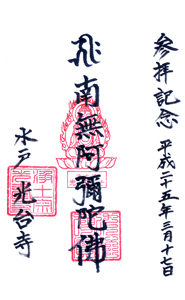 参拝記念
平成二十五年三月十七日
南無阿彌陀佛
水戸 光台寺